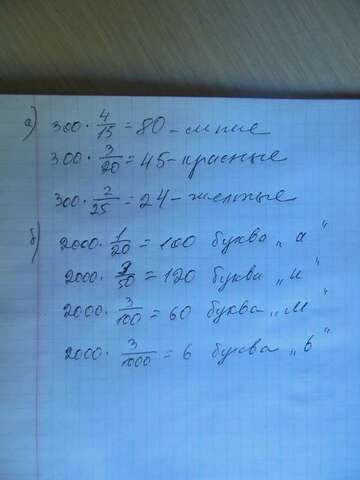 а) 300 · 4/15 = 80 - синие
300 · 3/20 = 45 - красные
300 · 2/25 = 24 - желтые
б) 2000 · 1/20 = 100 буква „а“
2000 · 3/50 = 120 буква „и“
2000 · 3/100 = 60 буква „м“
2000 · 3/1000 = 6 буква „б“